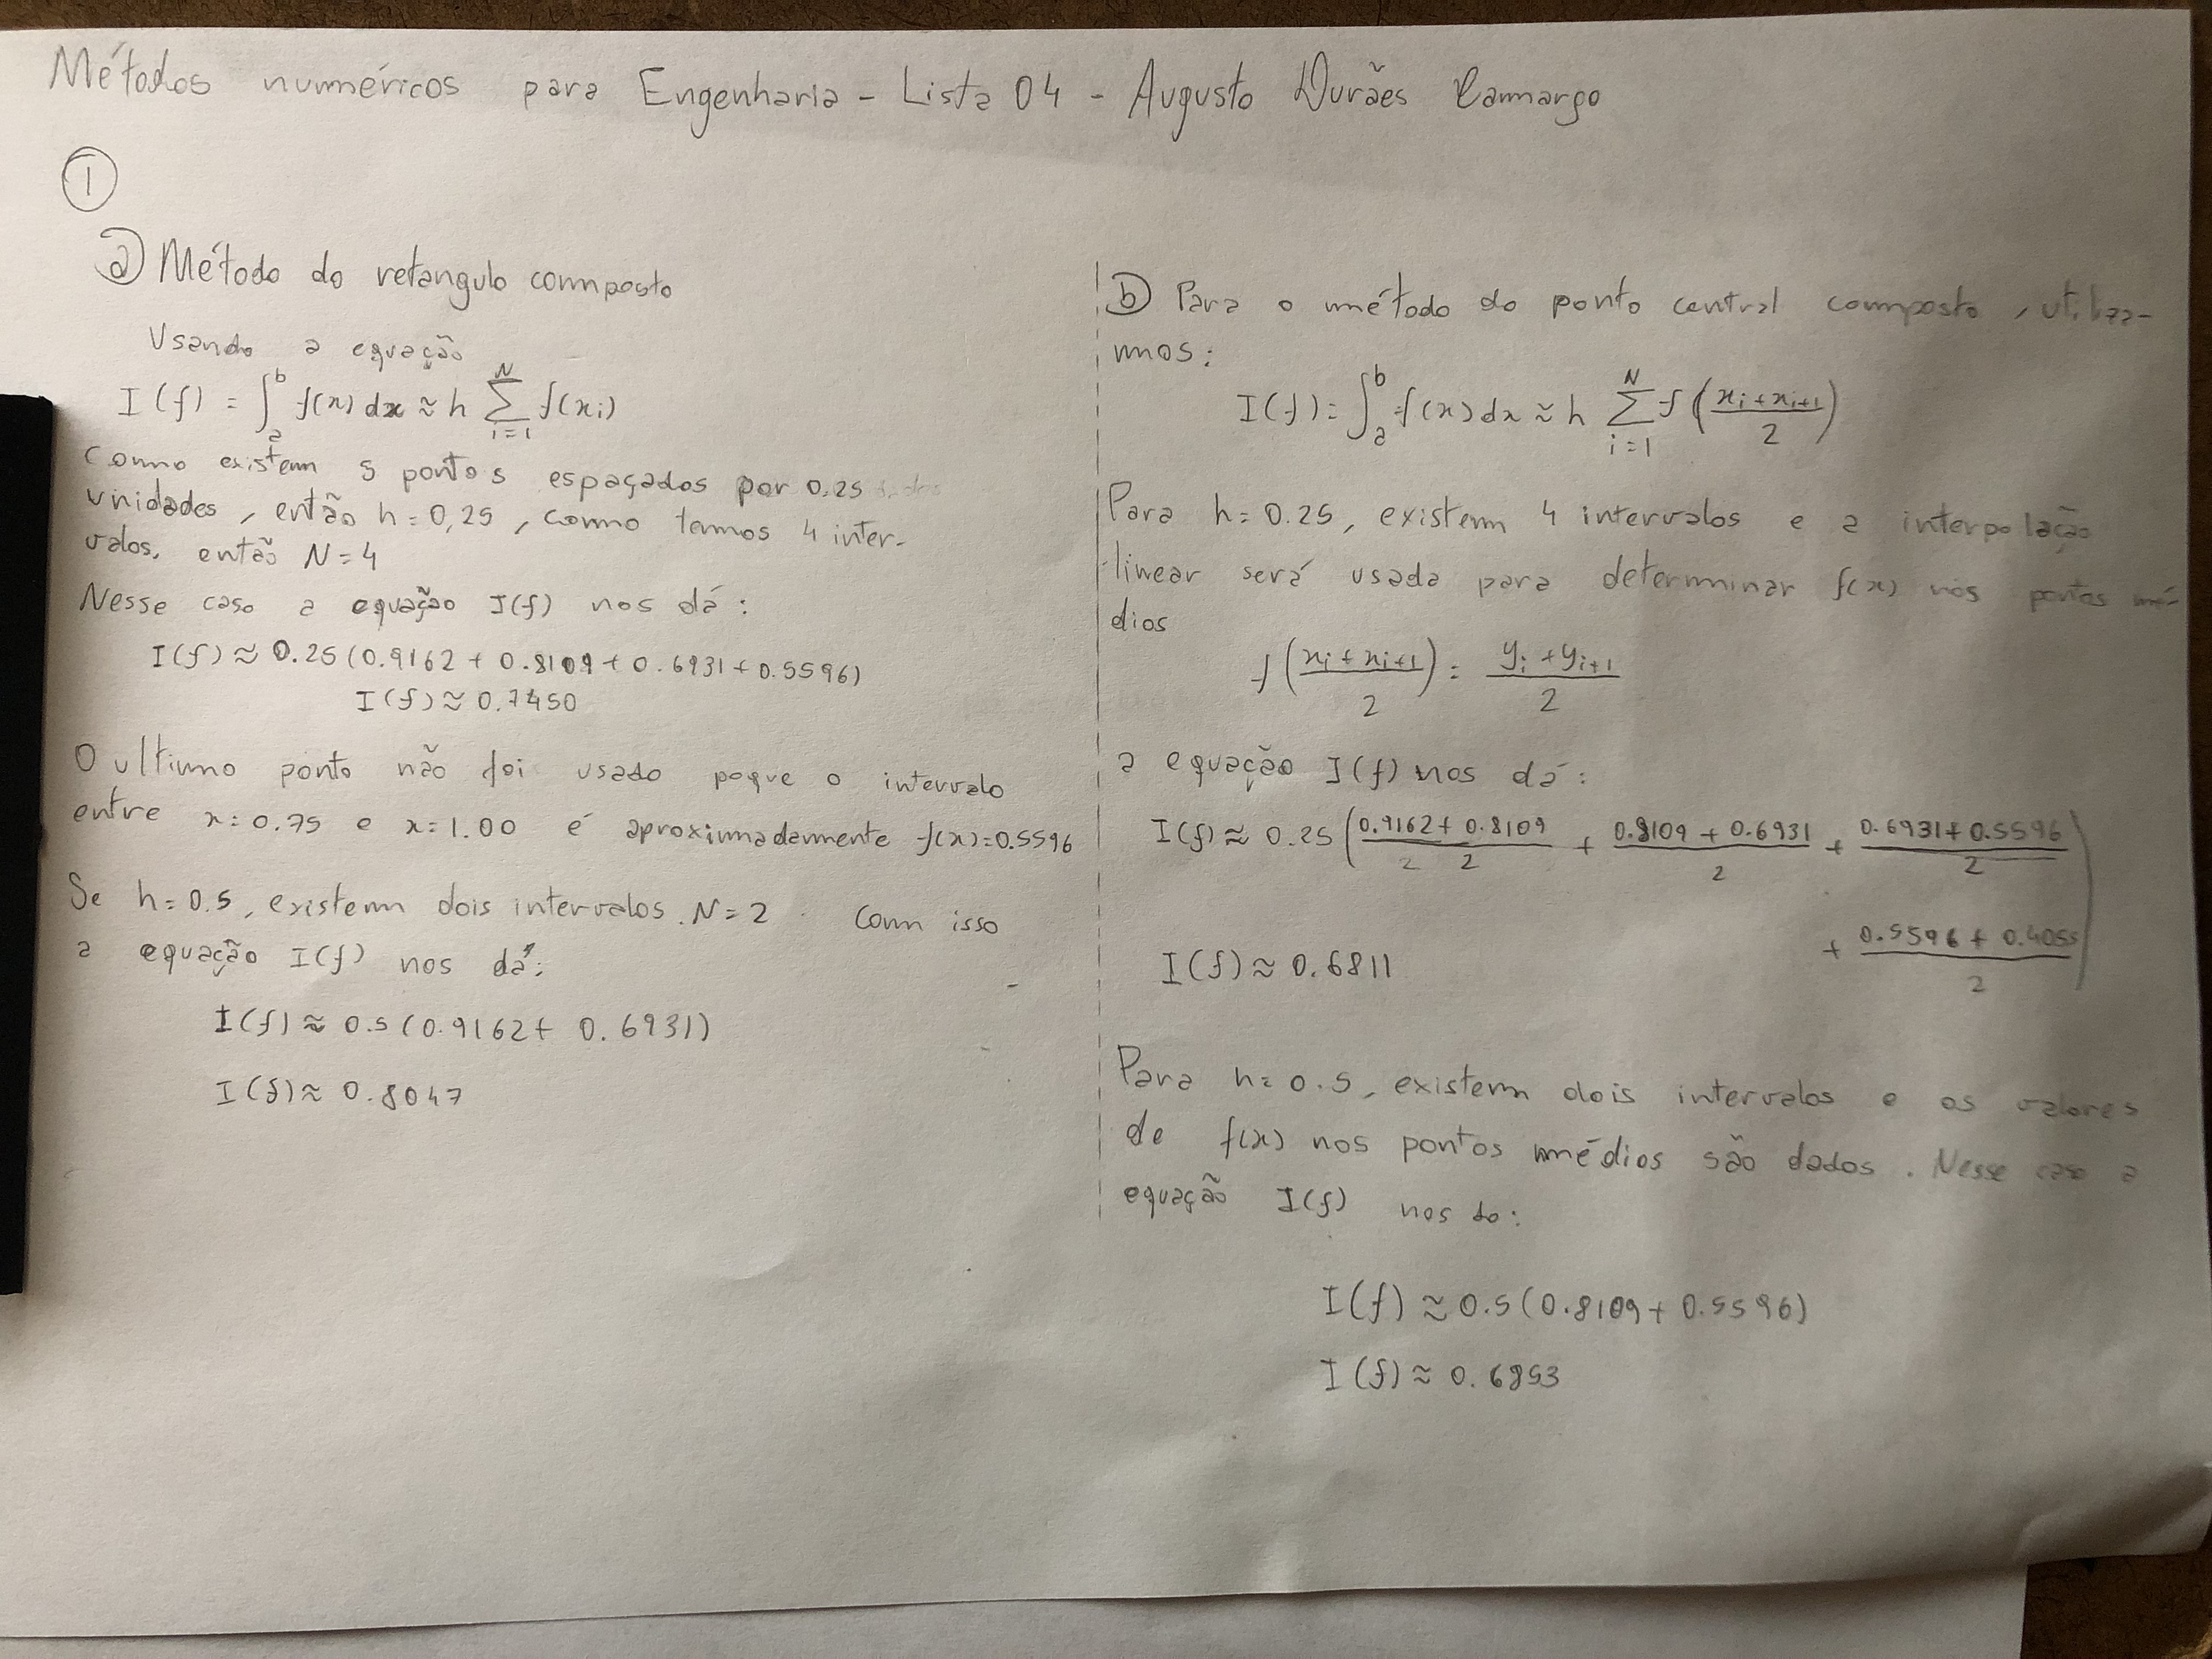 Métodos numéricos para Engenharia - Lista 04 - Augusto Durães Camargo
1
a) Método do retangulo composto
Usando a equação
I(f) = ∫_a^b f(x)dx ≈ h Σ_{i=1}^N f(xi)
Como existem 5 pontos espaçados por 0.25
unidades, então h=0,25, como temos 4 inter-
valos, então N=4
Nesse caso a equação I(f) nos dá:
I(f) ≈ 0.25(0.9162 + 0.8109 + 0.6931 + 0.5596)
I(f) ≈ 0.7450
O ultimo ponto não foi usado poque o intervalo
entre x=0.75 e x=1.00 é aproximadamente f(x)=0.5596
Se h=0.5, existem dois intervalos. N=2. Com isso
a equação I(f) nos dá:
I(f) ≈ 0.5(0.9162 + 0.6931)
I(f) ≈ 0.8047
b) Para o método do ponto central composto, utiliza-
mos:
I(f) = ∫_a^b f(x)dx ≈ h Σ_{i=1}^N f((xi + xi+1)/2)
Para h=0.25, existem 4 intervalos e a interpolação
linear será usada para determinar f(x) nos pontos mé-
dios
f((xi + xi+1)/2) = (yi + yi+1)/2
a equação I(f) nos dá:
I(f) ≈ 0.25((0.9162 + 0.8109)/2 + (0.8109 + 0.6931)/2 + (0.6931 + 0.5596)/2
+ (0.5596 + 0.4055)/2)
I(f) ≈ 0.6811
Para h=0.5, existem dois intervalos e os valores
de f(x) nos pontos médios são dados. Nesse caso a
equação I(f) nos do:
I(f) ≈ 0.5(0.8109 + 0.5596)
I(f) ≈ 0.6853